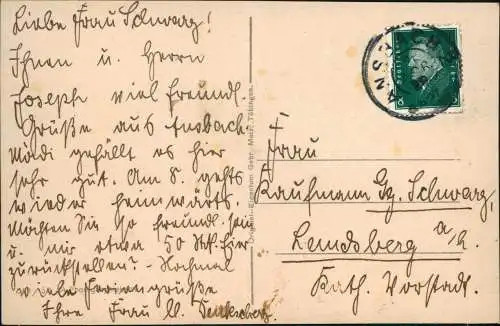 Liebe Frau Schwarz!
Ihnen u. Herrn
Joseph viel freundl.
Grüße aus Ansbach.
Mädi gefällt es hier
sehr gut. Am 8. gehts
wieder heimwärts.
Möchten Sie so freundl. sein
u. mir etwa 50 hier
zurückstellen? - Nochmal
viele Feriengrüße
Ihre Frau
Gebr. Metz, Tübingen.
ANSB
8
Frau
Kaufmann Gg. Schwarz,
Landsberg a/L.
Kath. Vorstadt.